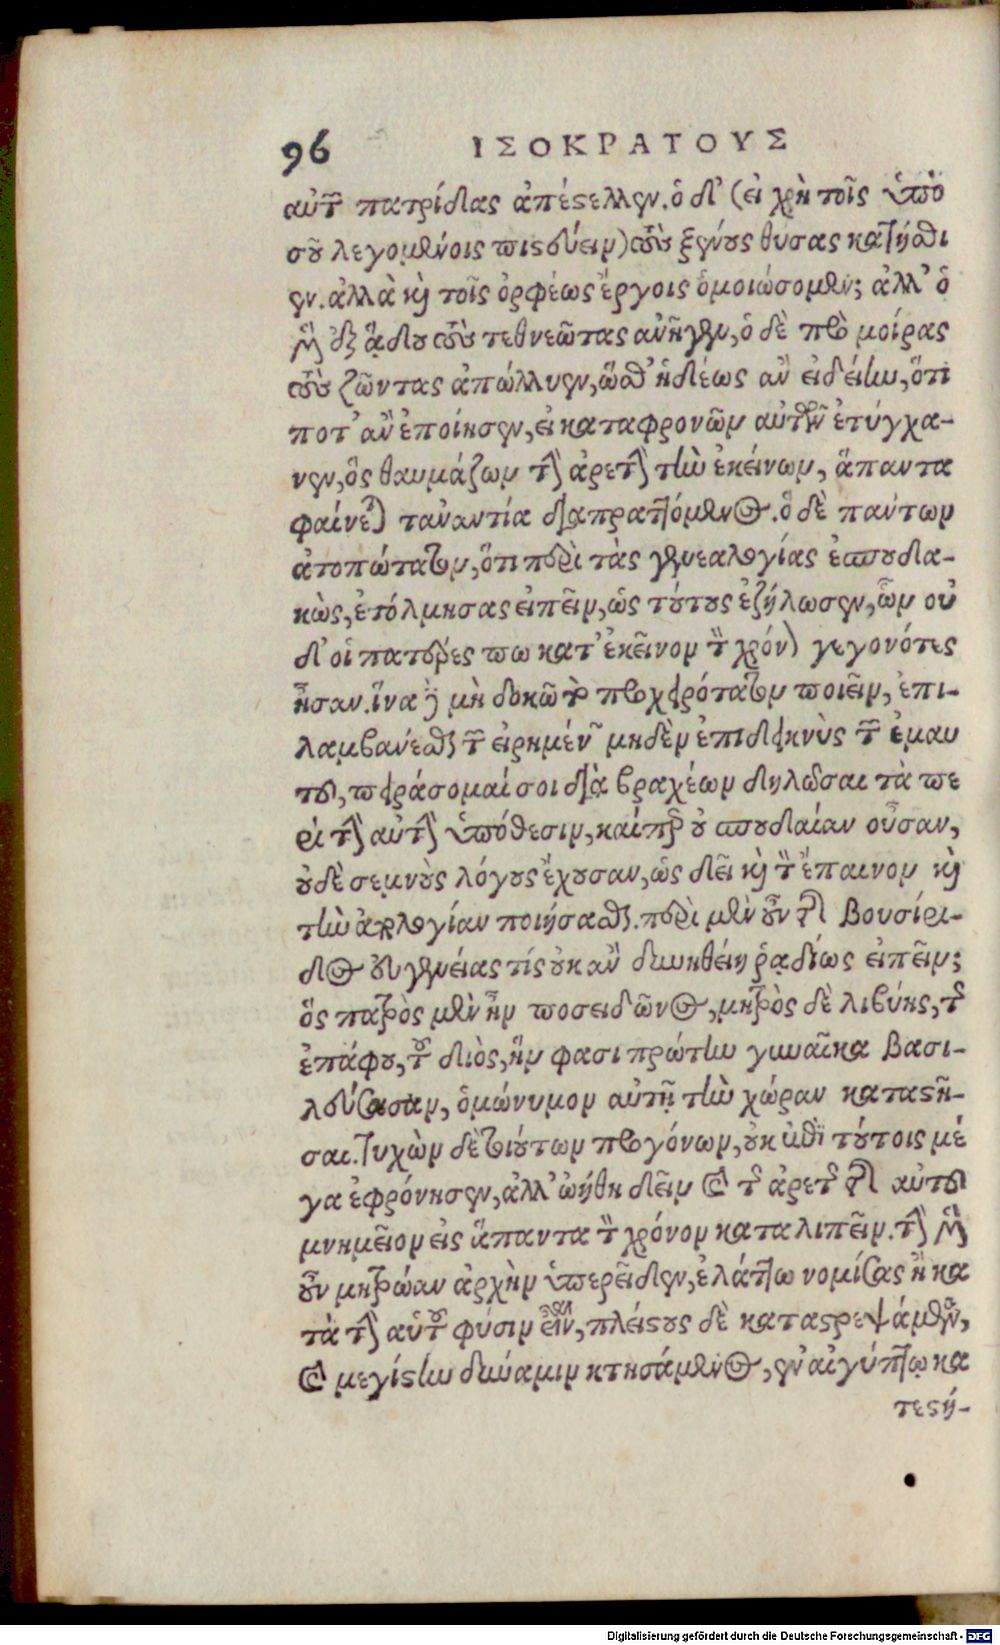 96 ΙΣΟΚΡΑΤΟΥΣ
αὐτῶν πατρίδας ἀπέστελλεν. ὁ δ' (εἰ χρὴ τοῖς ὑπὸ
σοῦ λεγομένοις πιστεύειν) τοὺς ξένους θύσας κατήσθι
εν. ἀλλὰ καὶ τοῖς ὀρφέως ἔργοις ὁμοιώσομεν; ἀλλ' ὁ
μὲν ἐξ ᾅδου τοὺς τεθνεῶτας ἀνῆγεν, ὁ δὲ πρὸ μοίρας
τοὺς ζῶντας ἀπώλλυεν, ὥσθ' ἡδέως ἂν εἰδείην, ὅτι
ποτ' ἂν ἐποίησεν, εἰ καταφρονῶν αὐτῶν ἐτύγχα-
νεν, ὃς θαυμάζων τὴν ἀρετὴν τὴν ἐκείνων, ἅπαντα
φαίνεται τἀναντία διαπραττόμενος. ὃ δὲ πάντων
ἀτοπώτατον, ὅτι περὶ τὰς γενεαλογίας ἐσπουδα-
κὼς, ἐτόλμησας εἰπεῖν, ὡς τούτους ἐζήλωσεν, ὧν οὐ
δ' οἱ πατέρες πω κατ' ἐκεῖνον τὸν χρόνον γεγονότες
ἦσαν. ἵνα δὲ μὴ δοκῶ τὸ προχειρότατον ποιεῖν, ἐπι-
λαμβάνεσθαι τῶν εἰρημένων μηδὲν ἐπιδεικνὺς τῶν ἐμαυ
τοῦ, πειράσομαί σοι διὰ βραχέων δηλῶσαι τὰ πε
ρὶ τὴν αὐτὴν ὑπόθεσιν, καίπερ οὐ σπουδαίαν οὖσαν,
οὐδὲ σεμνοὺς λόγους ἔχουσαν, ὡς δεῖ καὶ τὸν ἔπαινον καὶ
τὴν ἀπολογίαν ποιήσασθαι. περὶ μὲν οὖν τῆς Βουσίρι-
δος εὐγενείας τίς οὐκ ἂν δυνηθείη ῥᾳδίως εἰπεῖν;
ὃς πατρὸς μὲν ἦν ποσειδῶνος, μητρὸς δὲ λιβύης, τῆς
ἐπάφου, τοῦ διὸς, ἥν φασι πρώτην γυναῖκα βασι-
λεύσασαν, ὁμώνυμον αὐτῇ τὴν χώραν καταστῆ-
σαι. τυχὼν δὲ τοιούτων προγόνων, οὐκ ἐπὶ τούτοις μέ
γα ἐφρόνησεν, ἀλλ' ᾠήθη δεῖν καὶ τῆς ἀρετῆς τῆς αὐτοῦ
μνημεῖον εἰς ἅπαντα τὸν χρόνον καταλιπεῖν. τὴν μὲν
οὖν μητρῴαν ἀρχὴν ὑπερεῖδεν, ἐλάττω νομίσας ἢ κα
τὰ τὴν αὑτοῦ φύσιν εἶναι, πλείστους δὲ καταστρεψάμενος,
καὶ μεγίστην δύναμιν κτησάμενος, ἐν αἰγύπτῳ κα
τεστή-
Digitalisierung gefördert durch die Deutsche Forschungsgemeinschaft - DFG